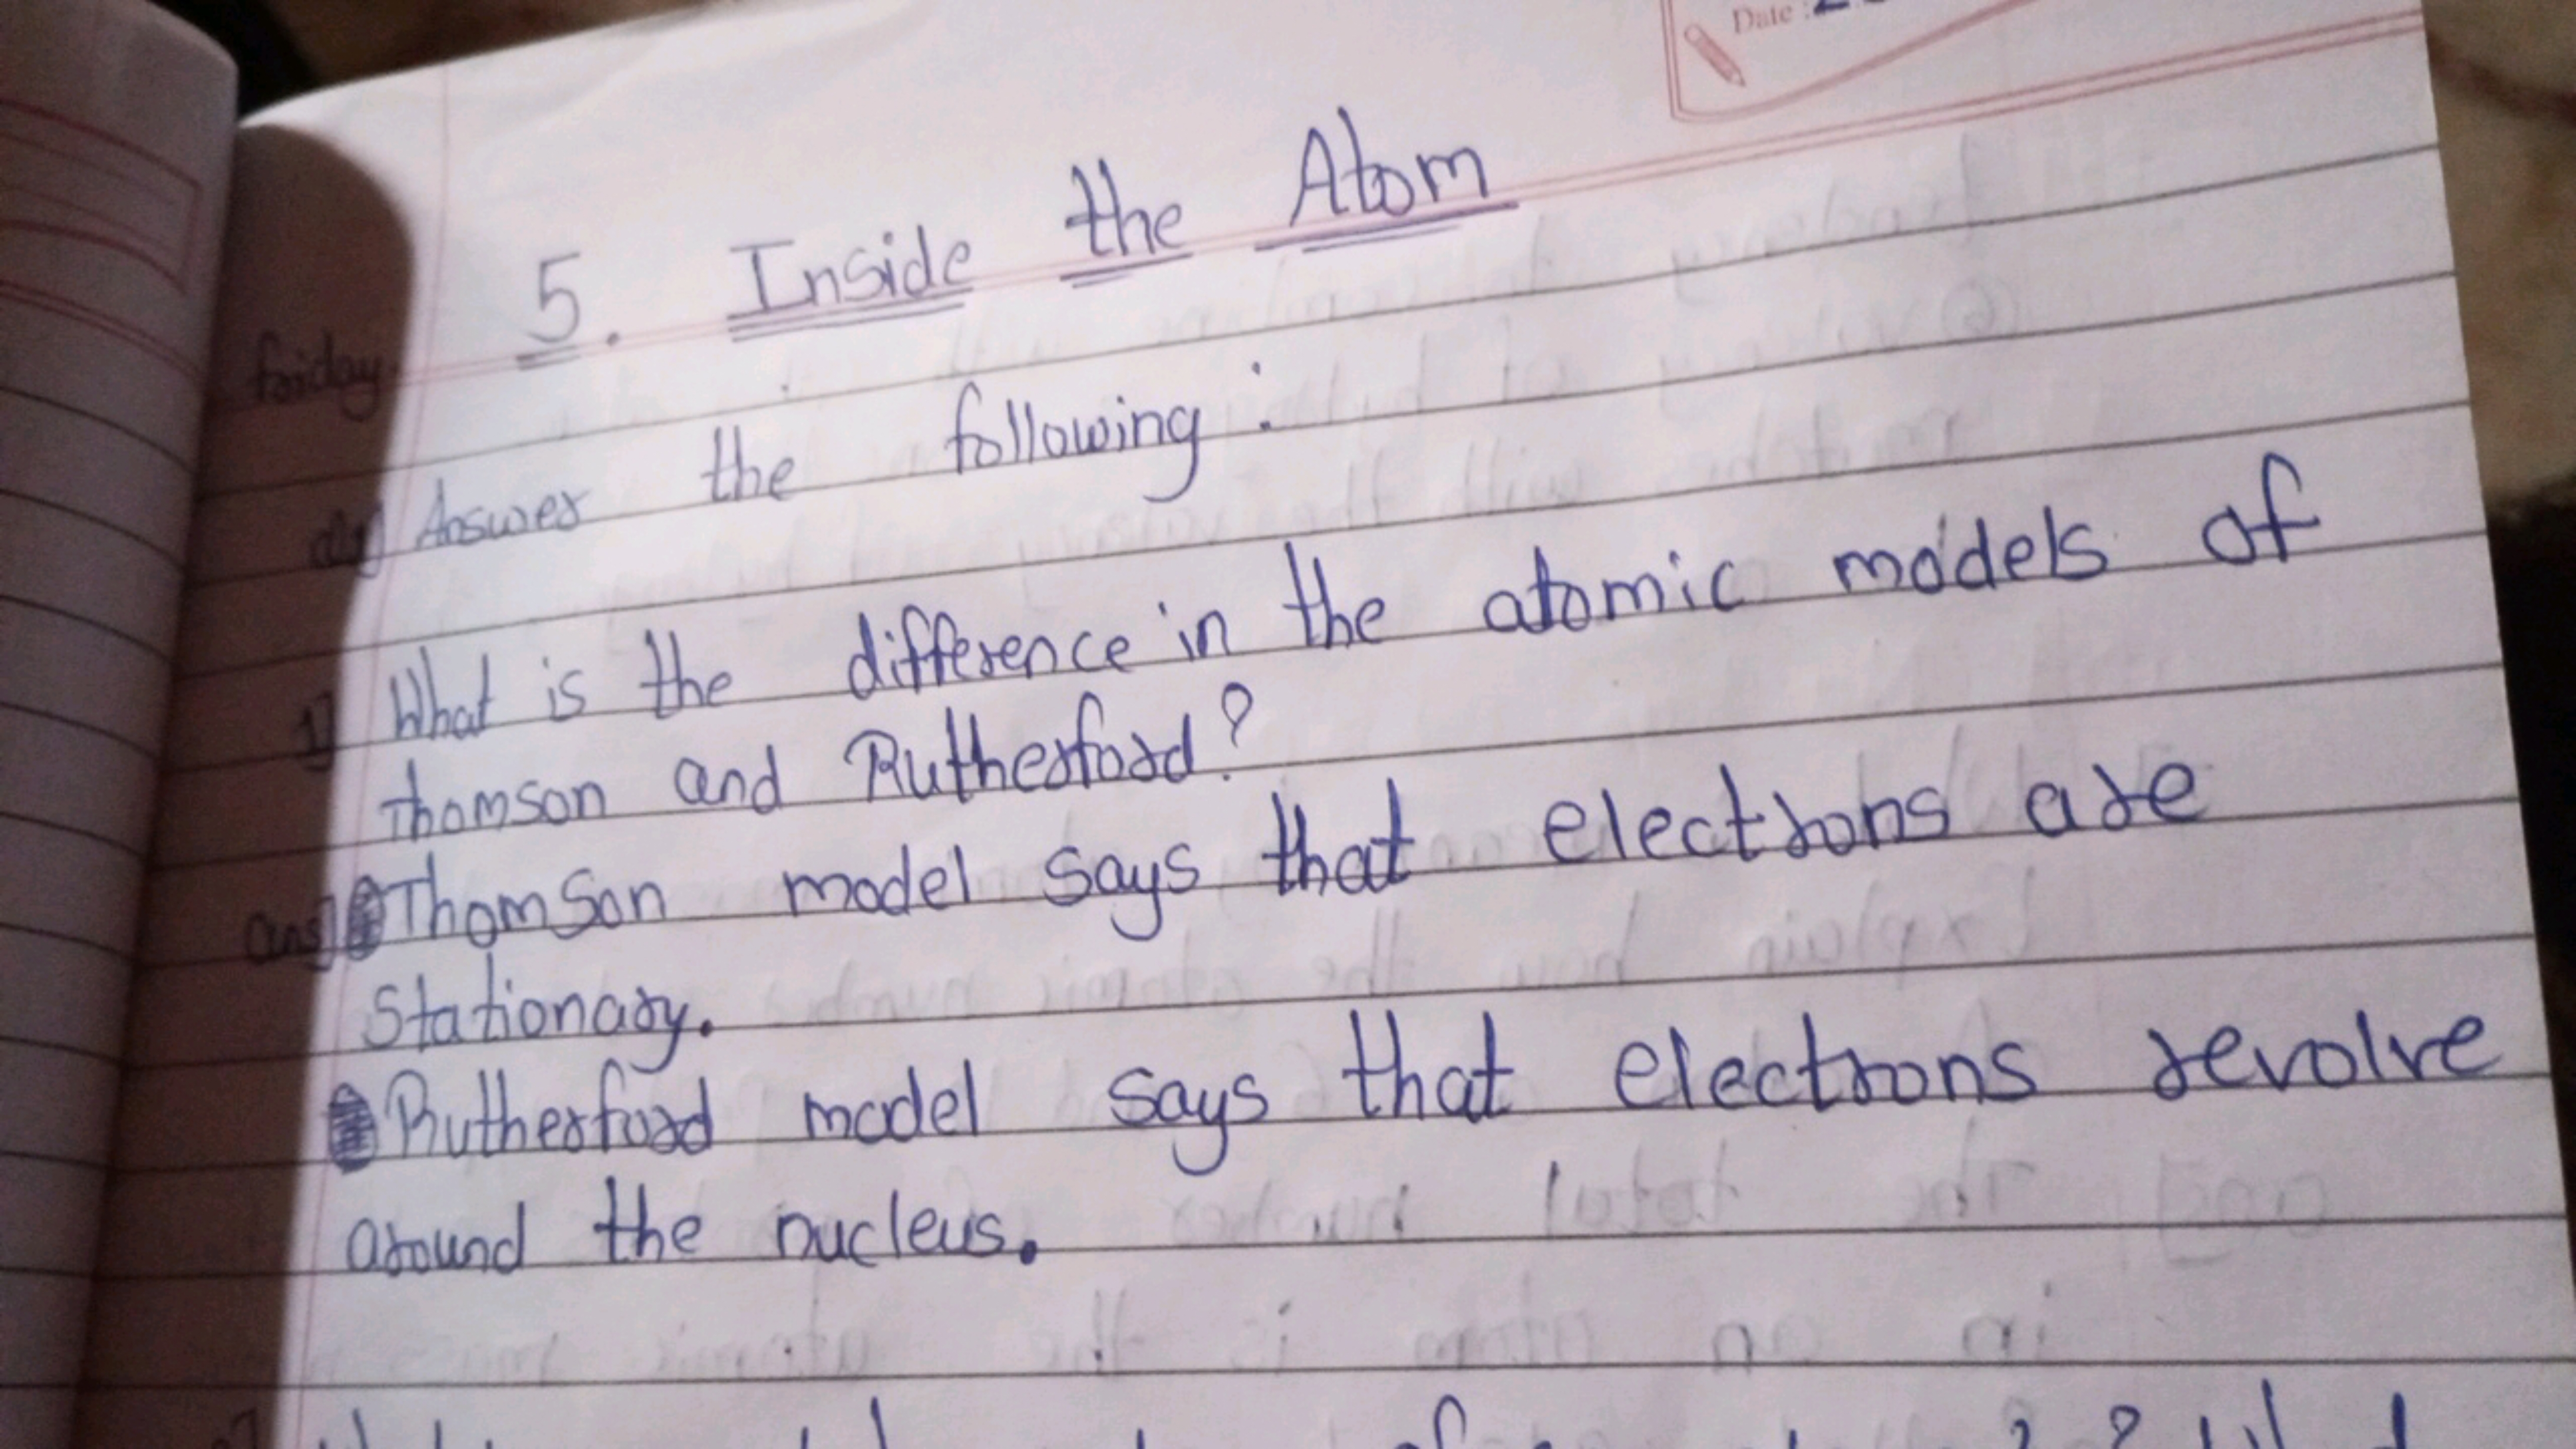 Date :
5. Inside the Atom
friday
Answer the following :
1] What is the difference in the atomic models of
thomson and Rutherford?
ans] Thomson model says that electrons are
Stationary.
Rutherford model says that electrons revolve
around the nucleus.